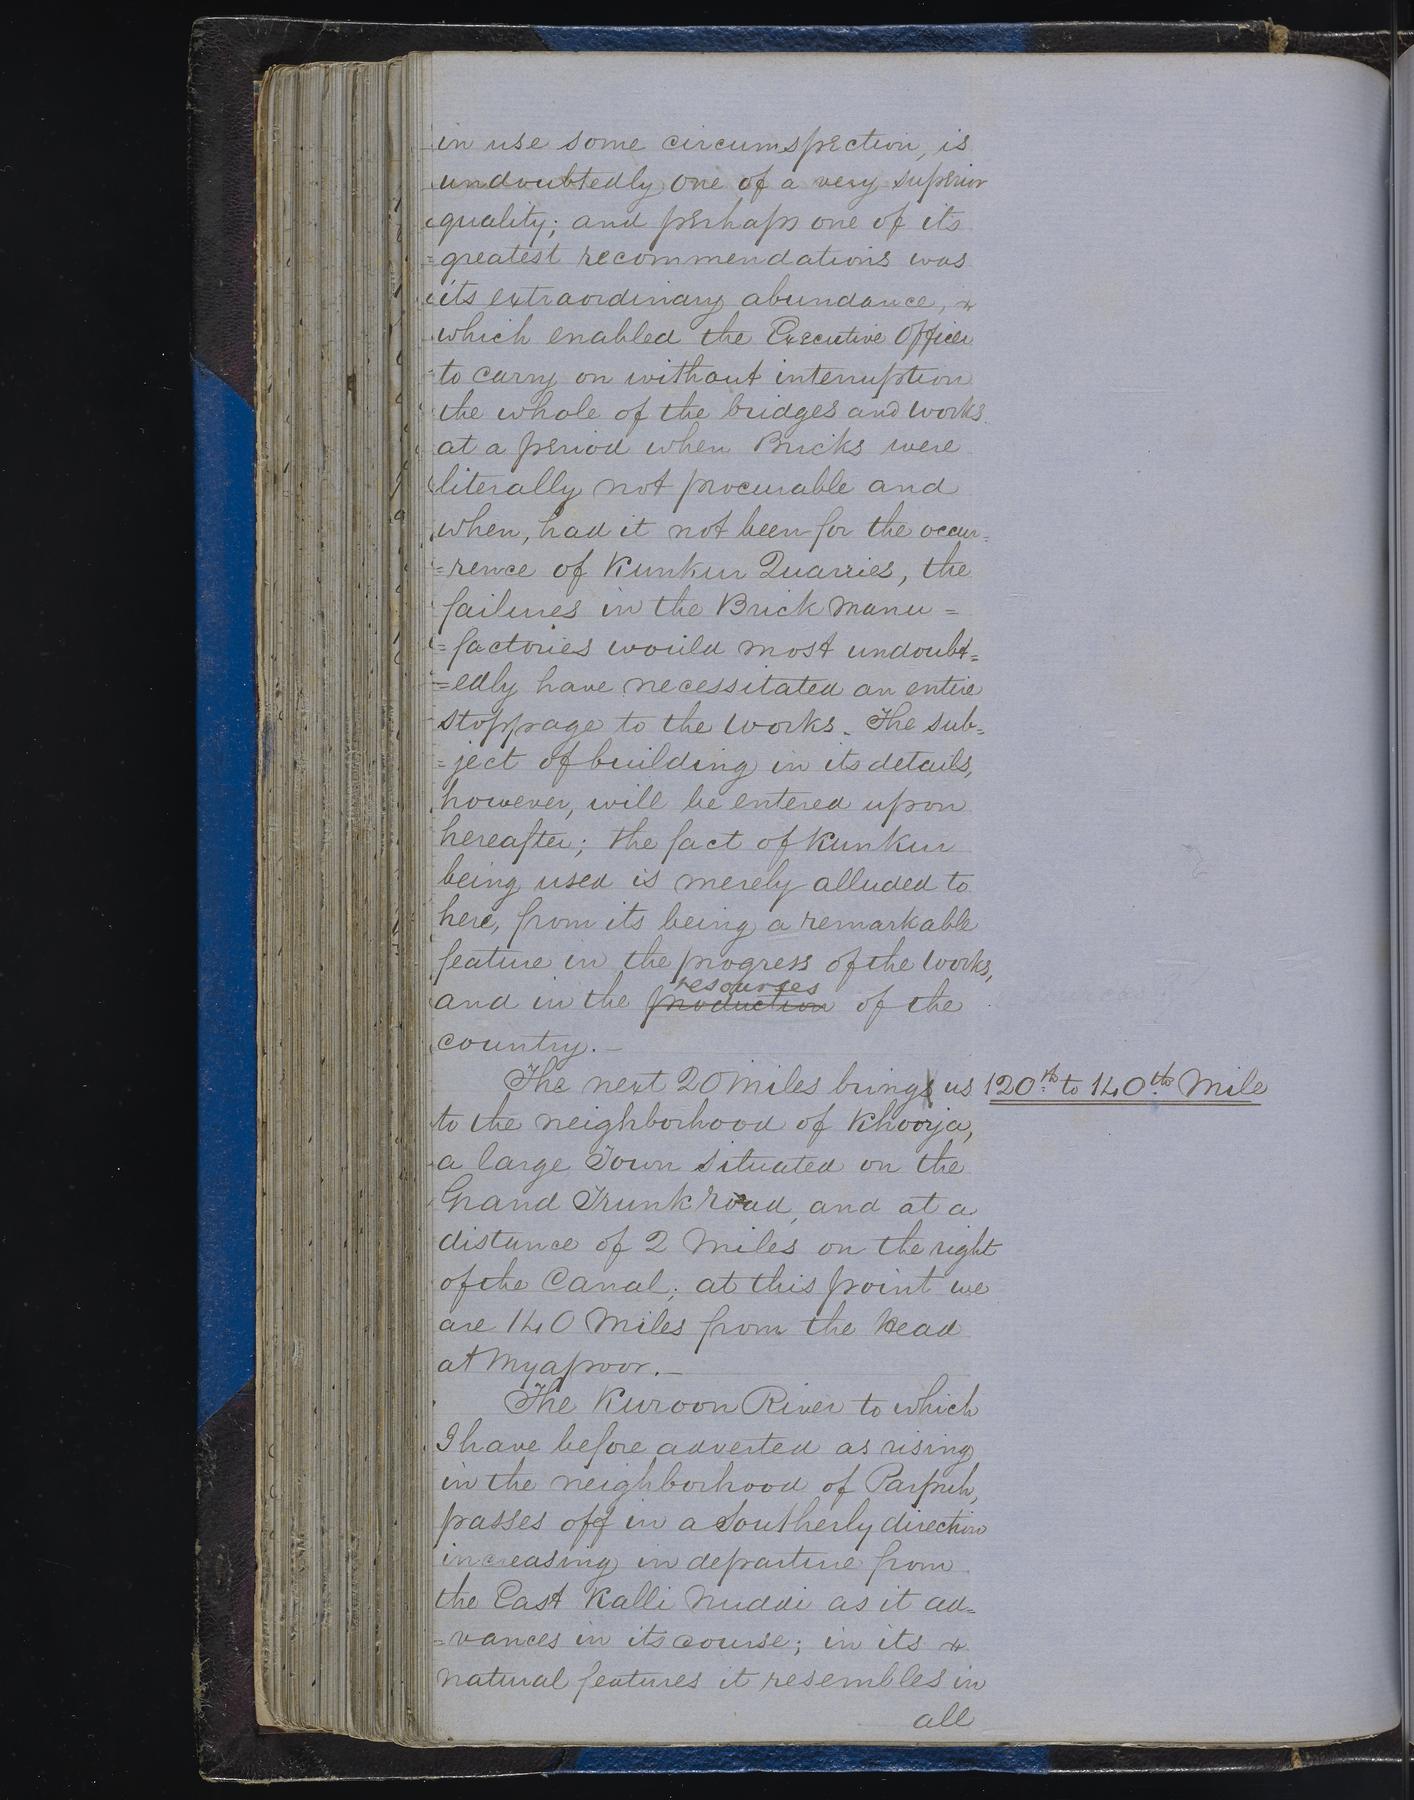 in use some circumspection, is
undoubtedly one of a very superior
quality; and perhaps one of its
=greatest recommendations was
its extraordinary abundance, &
which enabled the Executive Officer
to carry on without interruption
the whole of the bridges and works
at a period when Bricks were
literally not procurable and
when, had it not been for the occur=
=rence of Kunkur Quarries, the
failures in the Brick Manu=
=factories would most undoubt=
=edly have necessitated an entire
stoppage to the works. The sub=
=ject of building in its details,
however, will be entered upon
hereafter; the fact of Kunkur
being used is merely alluded to
here, from its being a remarkable
feature in the progress of the works,
resources
and in the production of the
country.—
The next 20 Miles brings us
120th to 140th Mile
to the neighborhood of Khoorja,
a large Town situated on the
Grand Trunk road, and at a
distance of 2 Miles on the right
of the Canal; at this point we
are 140 Miles from the head
at Myapoor.—
The Kuroon River to which
I have before adverted as rising
in the neighborhood of
passes off in a Southerly direction
increasing in departure from
the East Kalli Nuddi as it ad=
=vances in its course; in its
natural features it resembles in
all